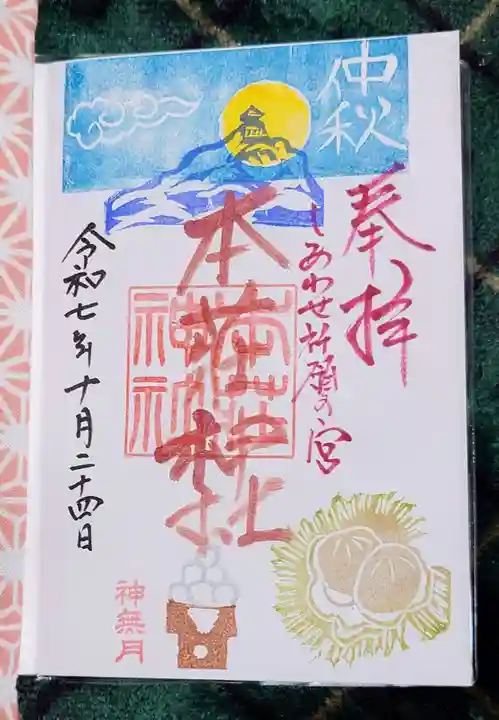 仲秋
奉拝
しあわせ祈願の宮
本荘神社
本荘神社
令和七年十月二十四日
神無月